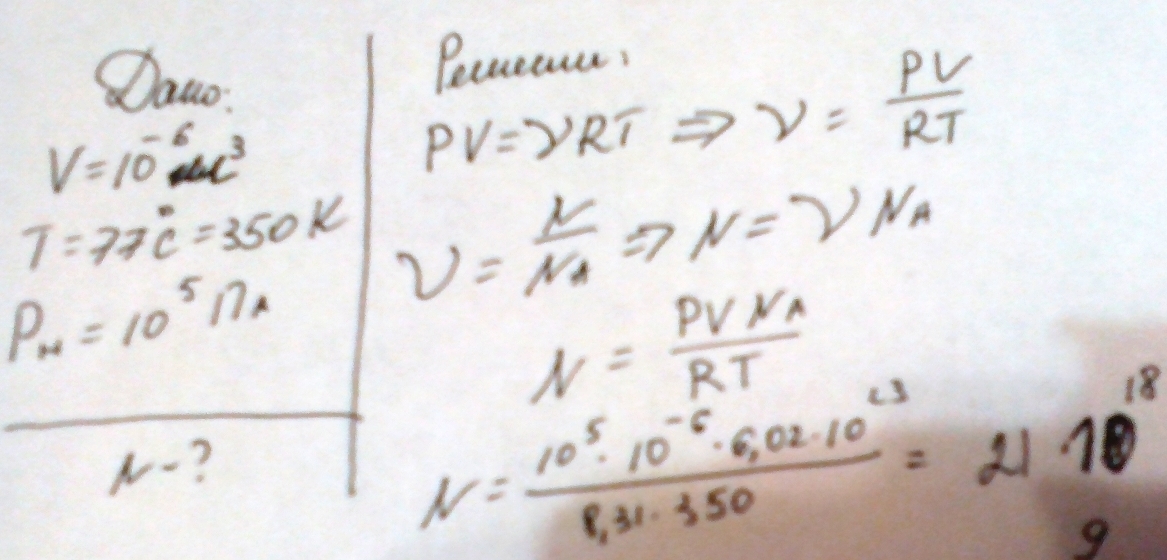 Дано:
V = 10⁻⁶ м³
T = 77°C = 350 К
Pн = 10⁵ ПА
N - ?
Решение:
PV = νRT ⇒ ν = PV/RT
ν = N/NA ⇒ N = ν NA
N = PV NA/RT
N = 10⁵ · 10⁻⁶ · 6,02 · 10²³/8,31 · 350 = 21 · 10¹⁸
9